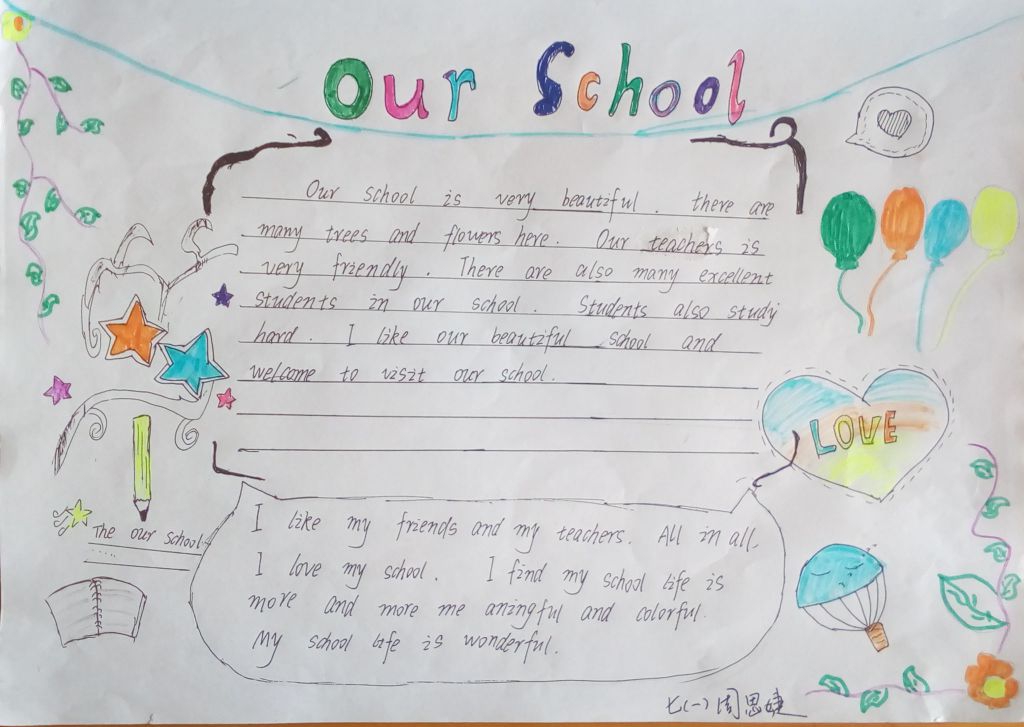 Our School
Our school is very beautiful. there are
many trees and flowers here. Our teachers is
very friendly. There are also many excellent
students in our school. Students also study
hard. I like our beautiful school and
welcome to visit our school.
LOVE
The our school
I like my friends and my teachers. All in all.
I love my school. I find my school life is
more and more me aningful and colorful.
My school life is wonderful.
七(一)周思婕